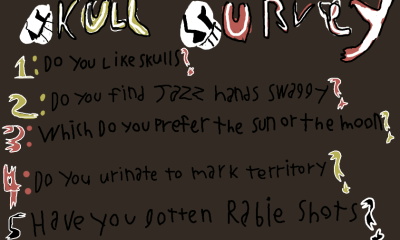 SKULL SURVEY
1: Do you Like skulls?
2: Do you find Jazz hands swaggy?
3: Which Do you Prefer the sun or the moon?
4: Do you urinate to mark territory?
5 Have you gotten Rabie Shots?